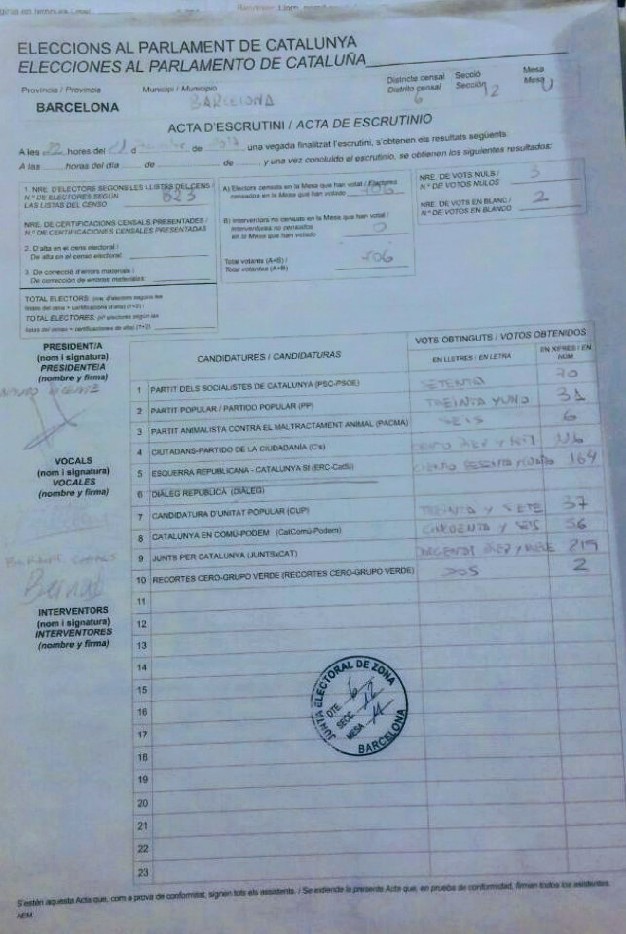 ELECCIONS AL PARLAMENT DE CATALUNYA
ELECCIONES AL PARLAMENTO DE CATALUÑA
Província / Provincia
Municipi / Municipio
Districte censal
Distrito censal
6
Secció
Sección 12
Mesa
Mesa U
BARCELONA
BARCELONA
ACTA D'ESCRUTINI / ACTA DE ESCRUTINIO
A les 22 hores del 21 d de una vegada finalitzat l'escrutini, s'obtenen els resultats següents.
A las horas del día de de y una vez concluido el escrutinio, se obtienen los siguientes resultados:
1. NRE. D'ELECTORS SEGONS LES LLISTES DEL CENS /
N.º DE ELECTORES SEGÚN
LAS LISTAS DEL CENSO
823
NRE. DE CERTIFICACIONS CENSALS PRESENTADES /
N.º DE CERTIFICACIONES CENSALES PRESENTADAS
2. D'alta en el cens electoral /
De alta en el censo electoral:
3. De correcció d'errors materials /
De corrección de errores materiales:
TOTAL ELECTORS
TOTAL ELECTORES
A) Electors censats en la Mesa que han votat / Electores
censados en la Mesa que han votado
706
B) Interventors no censats en la Mesa que han votat /
Interventores no censados
en la Mesa que han votado
0
Total votants (A+B) /
Total votantes (A+B)
706
NRE. DE VOTS NULS /
N.º DE VOTOS NULOS
3
NRE. DE VOTS EN BLANC /
N.º DE VOTOS EN BLANCO
2
PRESIDENT/A
(nom i signatura)
PRESIDENTE/A
(nombre y firma)
VOCALS
(nom i signatura)
VOCALES
(nombre y firma)
Bernat
INTERVENTORS
(nom i signatura)
INTERVENTORES
(nombre y firma)
CANDIDATURES / CANDIDATURAS
VOTS OBTINGUTS / VOTOS OBTENIDOS
EN LLETRES / EN LETRA
EN XIFRES / EN NÚM
1 PARTIT DELS SOCIALISTES DE CATALUNYA (PSC-PSOE) SETENTA 70
2 PARTIT POPULAR / PARTIDO POPULAR (PP) TREINTA Y UNO 31
3 PARTIT ANIMALISTA CONTRA EL MALTRACTAMENT ANIMAL (PACMA) SEIS 6
4 CIUTADANS-PARTIDO DE LA CIUDADANÍA (C's) 116
5 ESQUERRA REPUBLICANA - CATALUNYA SÍ (ERC-CatSí) CIENTO SESENTA Y CUATRO 164
6 DIÀLEG REPUBLICÀ (DIÀLEG)
7 CANDIDATURA D'UNITAT POPULAR (CUP) TREINTA Y SIETE 37
8 CATALUNYA EN COMÚ-PODEM (CatComú-Podem) CINCUENTA Y SEIS 56
9 JUNTS PER CATALUNYA (JUNTSxCAT) 219
10 RECORTES CERO-GRUPO VERDE (RECORTES CERO-GRUPO VERDE) DOS 2
11
12
13
14
15
16
17
18
19
20
21
22
23
JUNTA ELECTORAL DE ZONA
DTE. 6
SECC. 12
MESA U
BARCELONA
S'estén aquesta Acta que, com a prova de conformitat, signen tots els assistents. / Se extiende la presente Acta que, en prueba de conformidad, firman todos los asistentes.